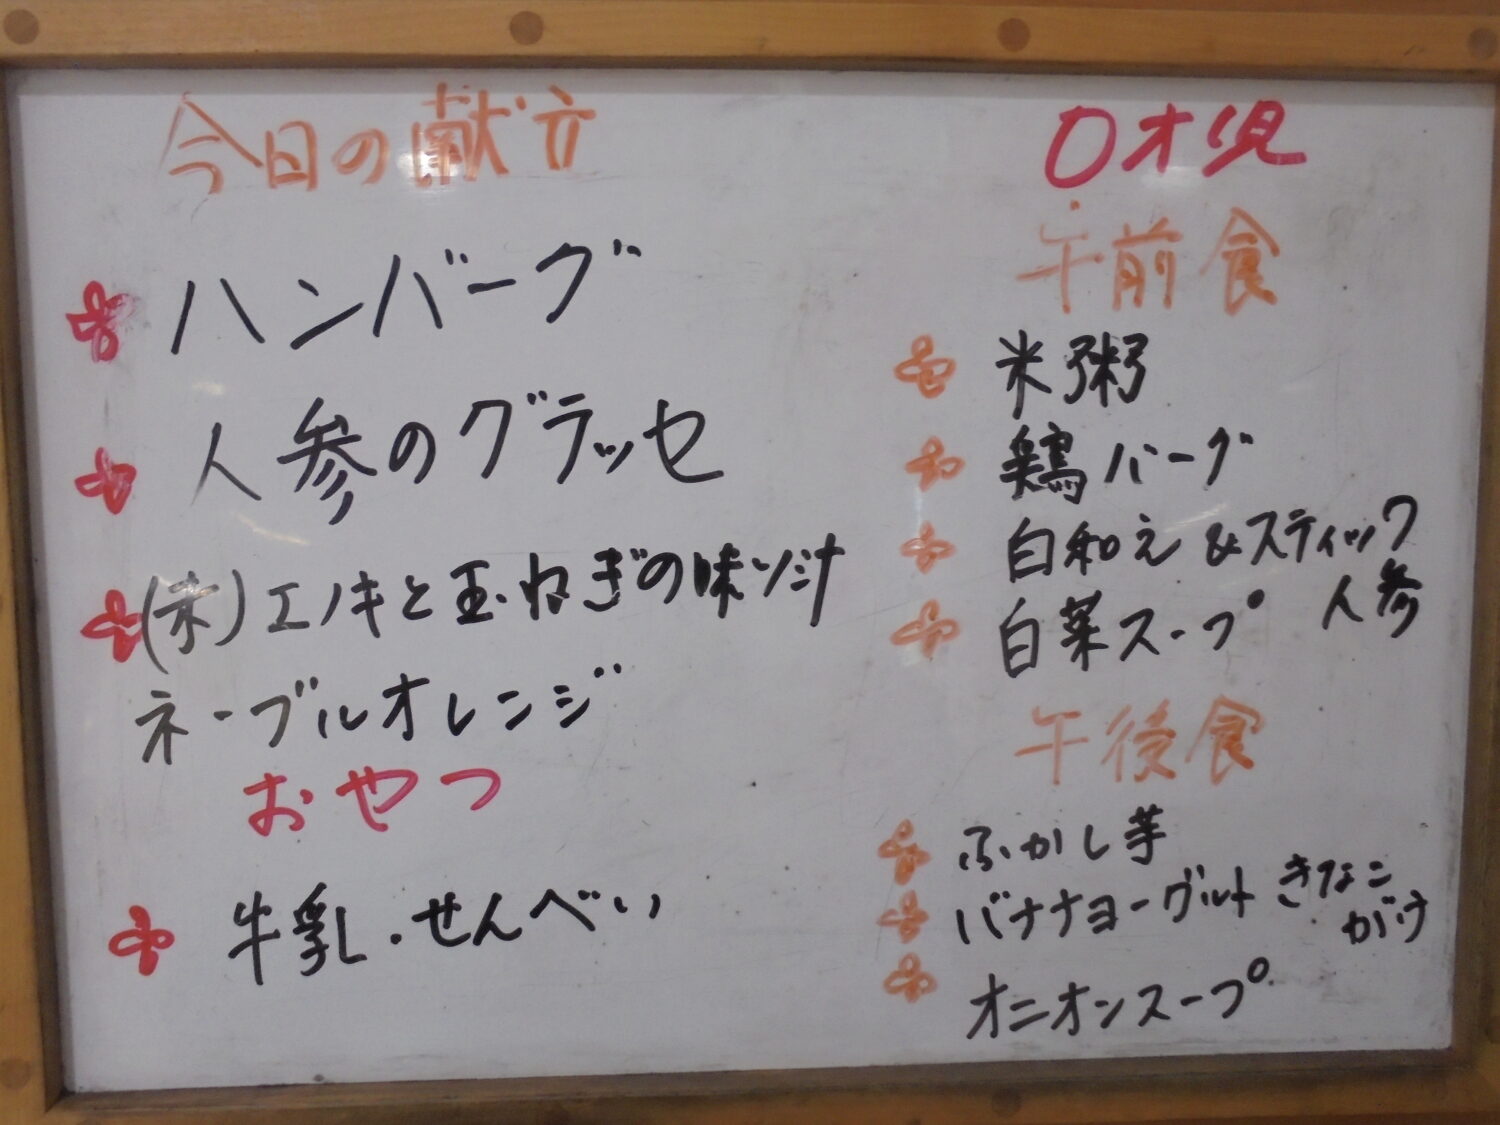 今日の献立
ハンバーグ
人参のグラッセ
(赤)エノキと玉ねぎの味ソ汁
ネーブルオレンジ
おやつ
牛乳・せんべい
0才児
午前食
米粥
鶏バーグ
白和え&スティック
人参
白菜スープ
午後食
ふかし芋
バナナヨーグルト きなこ
がけ
オニオンスープ